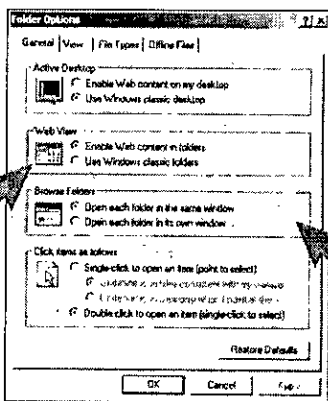 Folder Options ? X
General View File Types Offline Files
Active Desktop
Enable Web content on my desktop
Use Windows classic desktop
Web View
Enable Web content in folders
Use Windows classic folders
Browse Folders
Open each folder in the same window
Open each folder in its own window
Click items as follows
Single-click to open an item (point to select)
Double-click to open an item (single-click to select)
Restore Defaults
OK Cancel